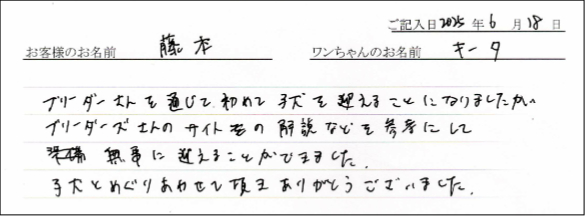 ご記入日 2025 年 6 月 18 日
お客様のお名前 藤本 ワンちゃんのお名前 キータ
ブリーダーさんを通じて初めて子犬を迎えることになりましたが
ブリーダーズさんのサイト内の解説などを参考にして
準備 無事に迎えることができました。
子犬とめぐりあわせて頂き ありがとうございました。